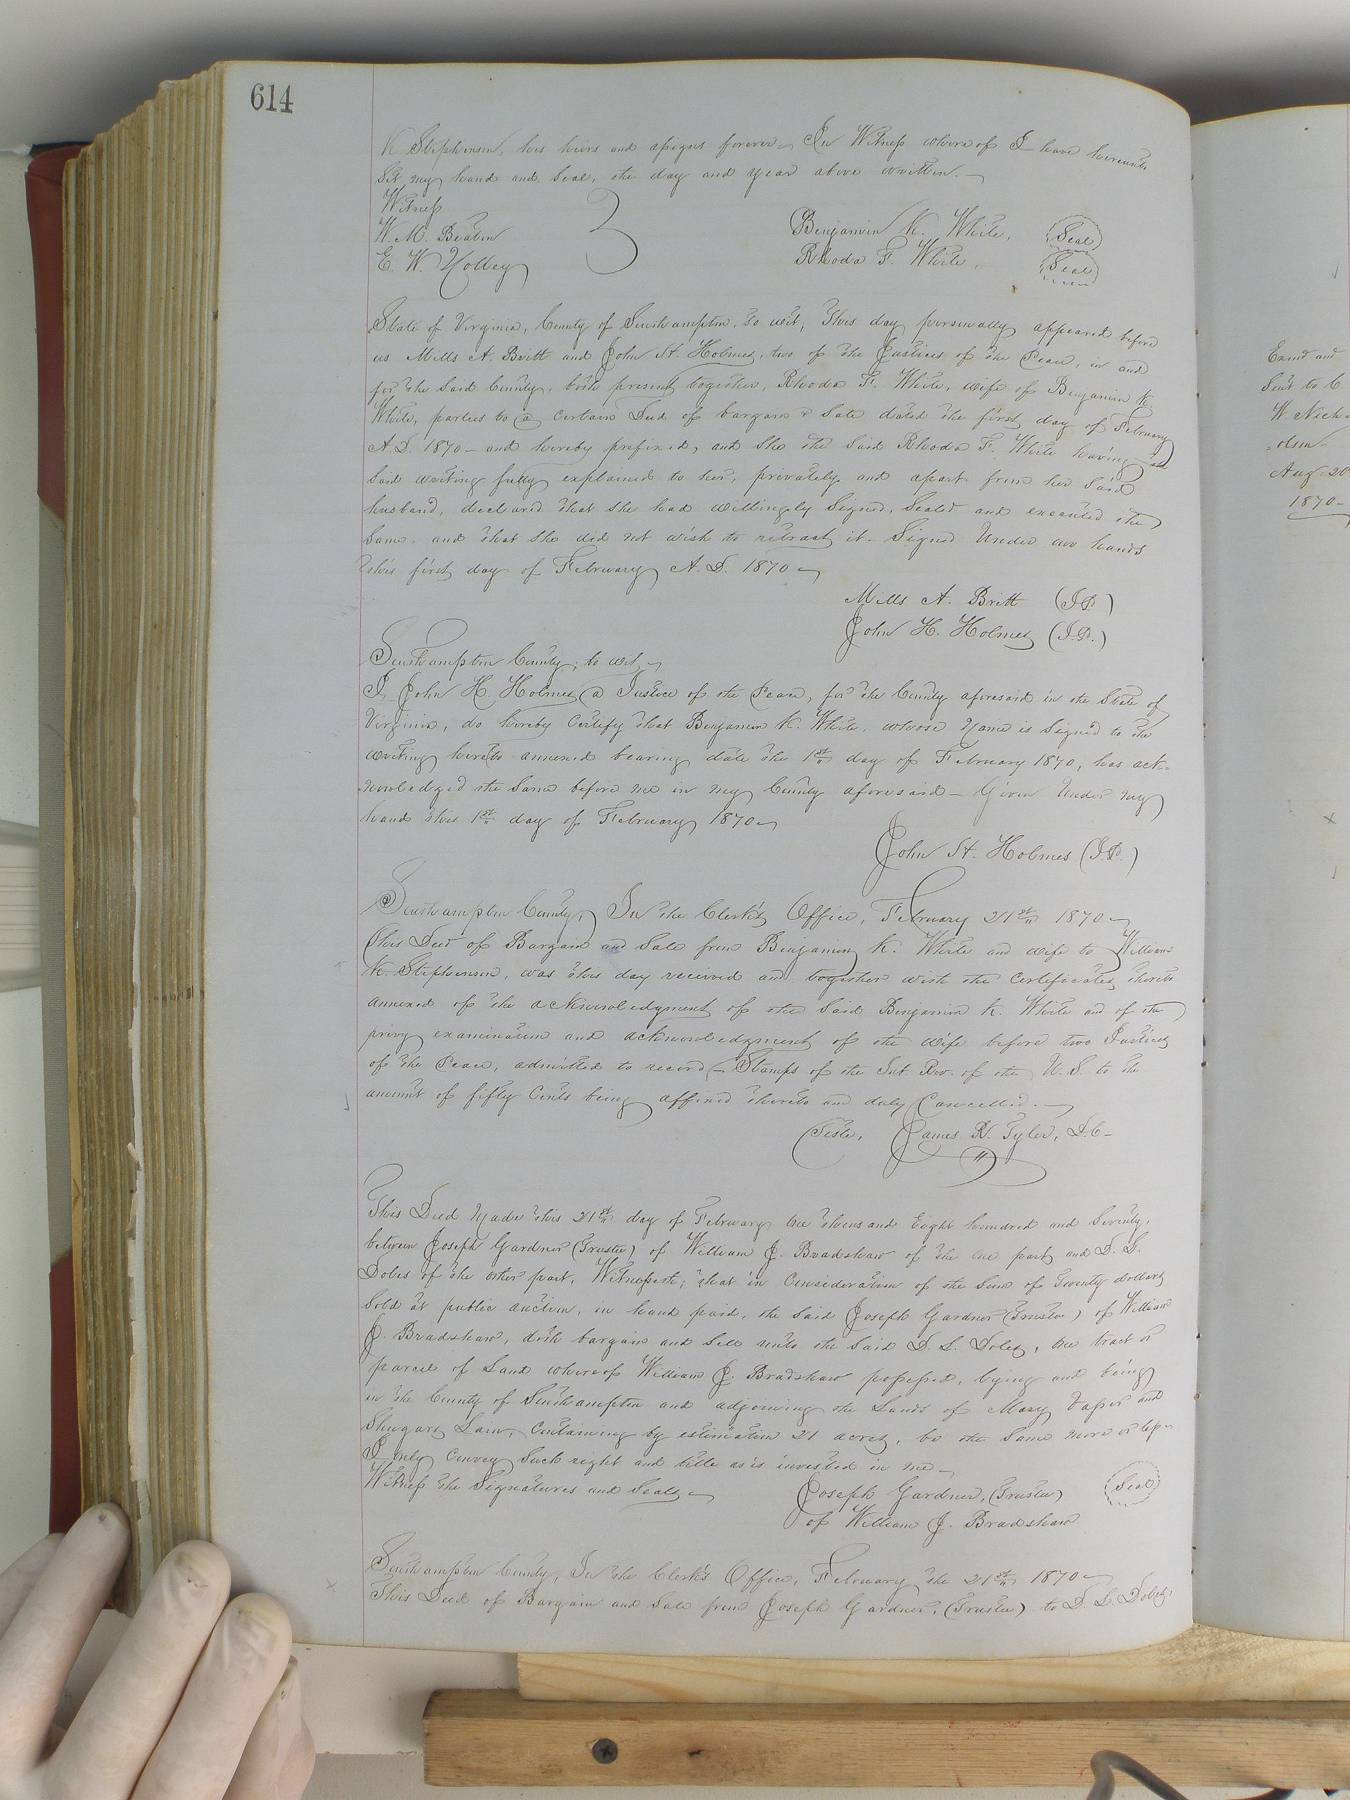 614
K. Stephenson, his heirs and assigns forever. In Witness whereof I have hereunto
Set my hand and Seal, the day and year above written.
Witness
W. M. Beaton
E. W. Nolley
Benjamin K. White, (Seal)
Rhoda F. White, (Seal)
State of Virginia, County of Southampton, to wit; This day personally appeared before
us Mills A. Britt and John H. Holmes, two of the Justices of the Peace, in and
for the Said County, both present together, Rhoda F. White, wife of Benjamin K.
White, parties to a certain Deed of bargain & Sale dated the first day of February
A.D. 1870 - and hereby prefixed, and She the Said Rhoda F. White having the
Said writing fully explained to her, privately and apart from her Said
husband, declared that She had willingly Signed, Sealed and executed the
Same, and that She did not wish to retract it - Signed Under our hands
this first day of February A.D. 1870 -
Mills A. Britt (J.P.)
John H. Holmes (J.P.)
Southampton County; to wit -
I John H. Holmes a Justice of the Peace, for the County aforesaid in the State of
Virginia, do hereby Certify that Benjamin K. White, whose Name is Signed to the
writing hereto annexed bearing date the 1st day of February 1870, has ack-
nowledged the Same before me in my County aforesaid - Given Under my
hand this 1st day of February 1870 -
John H. Holmes (J.P.)
Southampton County, In the Clerk's Office, February 21st 1870 -
This Deed of Bargain and Sale from Benjamin K. White and wife to William
K. Stephenson, was this day received and together with the Certificates thereto
annexed of the acknowledgment of the Said Benjamin K. White and of the
privy examination and acknowledgment of the wife before two Justices
of the Peace, admitted to record - Stamps of the Int. Rev. of the U.S. to the
amount of fifty Cents being affixed thereto and duly Cancelled. -
Teste, James N. Tyler, D.C. -
This Deed Made this 21st day of February One thousand Eight hundred and Seventy,
between Joseph Gardner (Trustee) of William J. Bradshaw of the one part and D. L.
Doles of the other part, Witnesseth; that in Consideration of the Sum of Twenty dollars
Sold at public auction, in hand paid, the Said Joseph Gardner (Trustee) of William
J. Bradshaw, doth bargain and Sell unto the Said D. L. Doles, one tract or
parcel of Land whereof William J. Bradshaw possessed, lying and being
in the County of Southampton and adjoining the Lands of Mary and
containing by estimation 21 acres, be the Same more or less
I only Convey Such right and title as is invested in me -
Witness the Signatures and Seals -
Joseph Gardner, (Trustee) (Seal)
of William J. Bradshaw
Southampton County, In the Clerk's Office, February the 21st 1870 -
This Deed of Bargain and Sale from Joseph Gardner, (Trustee) to D. L. Doles,
Exmd and
Sent to C
W Nich
olson -
Aug 20
1870 -